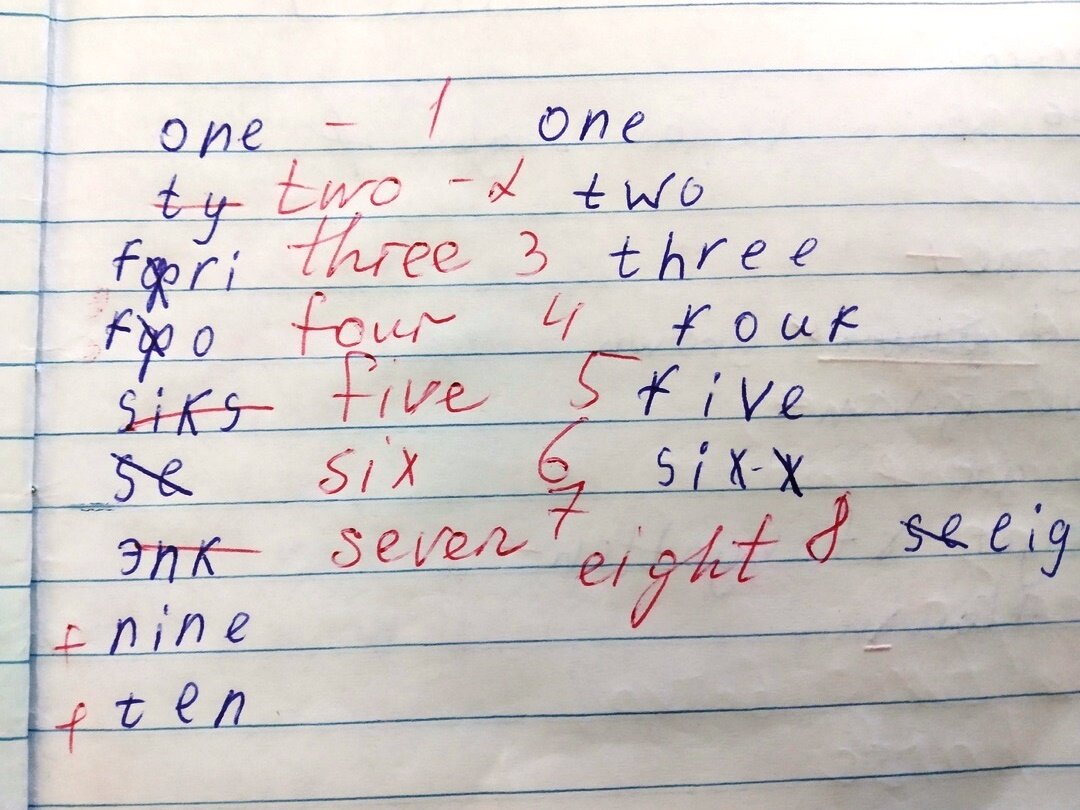 one - 1 one
ty two - 2 two
fri three 3 three
fo four 4 four
siks five 5 five
se six 6 six-x
эпк seven 7 eight 8 se eig
+ nine
+ ten